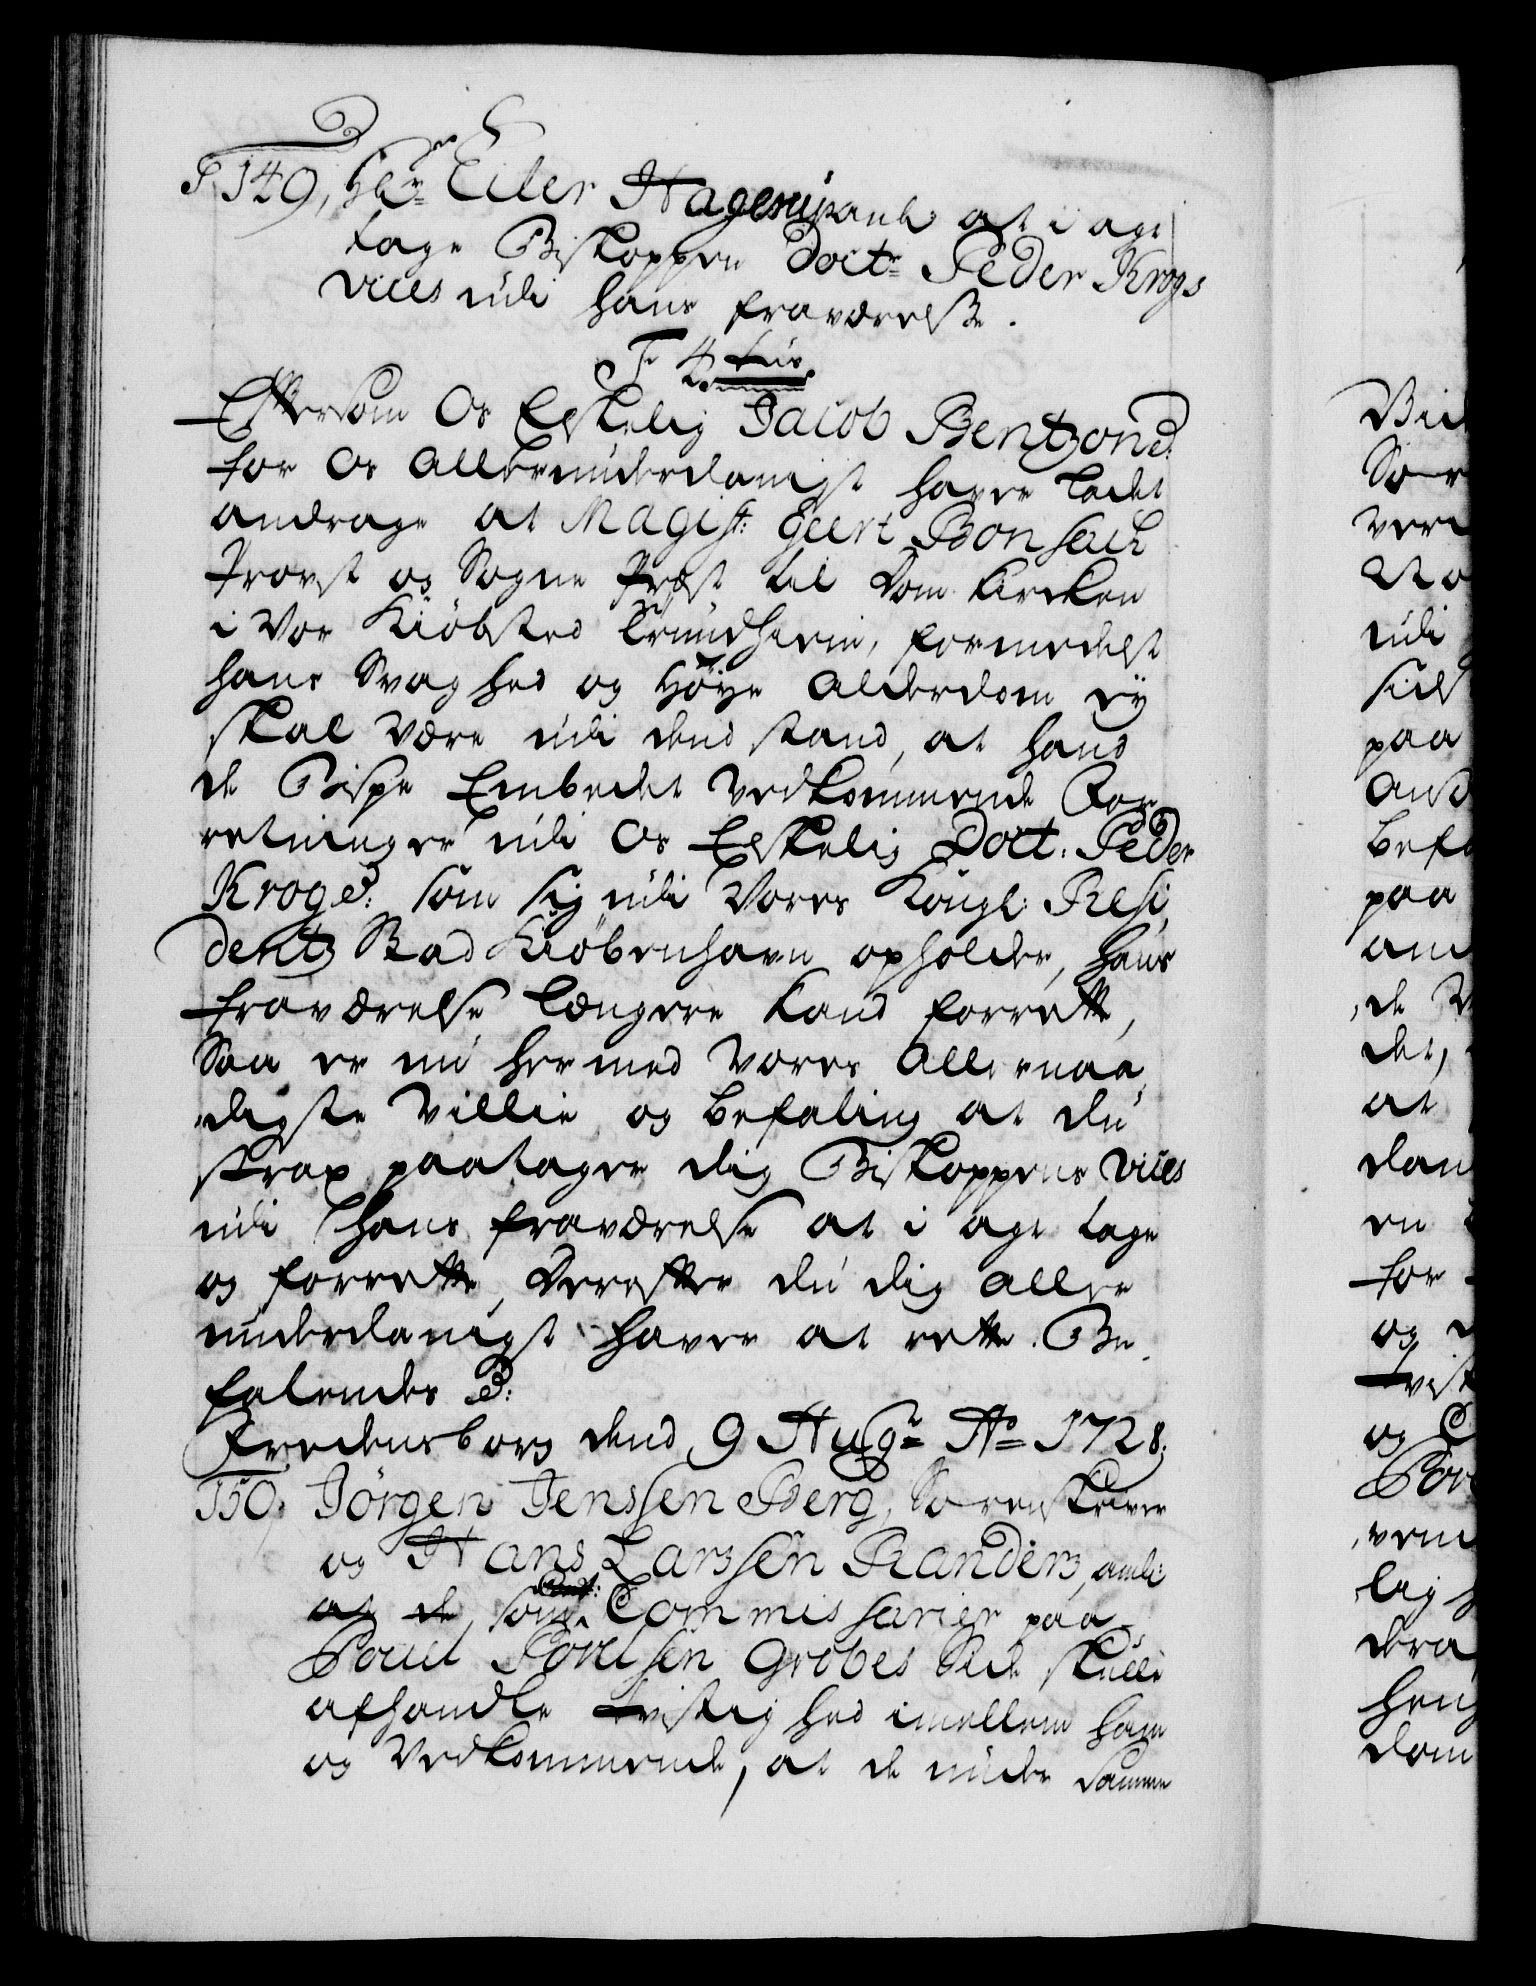 149, Hr: Eiler Hagerup anl: at i agt
tage Biskoppen Doct: Peder Krogs
vices udi hans fraværelse.
F 4 tus
Eftersom Os Elskelig Jacob Bentzon &:
for Os allerunderdanigst haver ladet
andrage at Magist: Geert Bonsach
Provst og Sogne Præst til Dom Kircken
i Vor Kiöbsted Trundhiem, formedelst
hans Svaghed og Höye Alderdom ey
skal være udi dend stand, at hand
de Bispe Embedet vedkommende For,,
retninger udi Os Elskelig Doct: Peder
Krog &: som sig udi Vores Kongl: Resi,,
dentz Stad Kiöbenhavn opholder, hans
fraværelse længere kand forrette,
Saa er nu hermed Vores Allernaa,,
digste Villie og befaling at du
strax paatager dig Biskoppens vices
udi hans fraværelse at i agt tage
og forrette, Derefter du dig aller
underdanigst haver at rette. Be,,
falendes &:
Fredensborg dend 9 Aug: Ao 1728.
150, Jörgen Jenssen Berg, Sorenskriver
og Hans Larssen Randers, anl:
at de, som Const: Commissarier paa
Pouel Povelsen Grobes Stæd skulle
afhandle tvistighed imellem ham
og Vedkommende, at de under samme